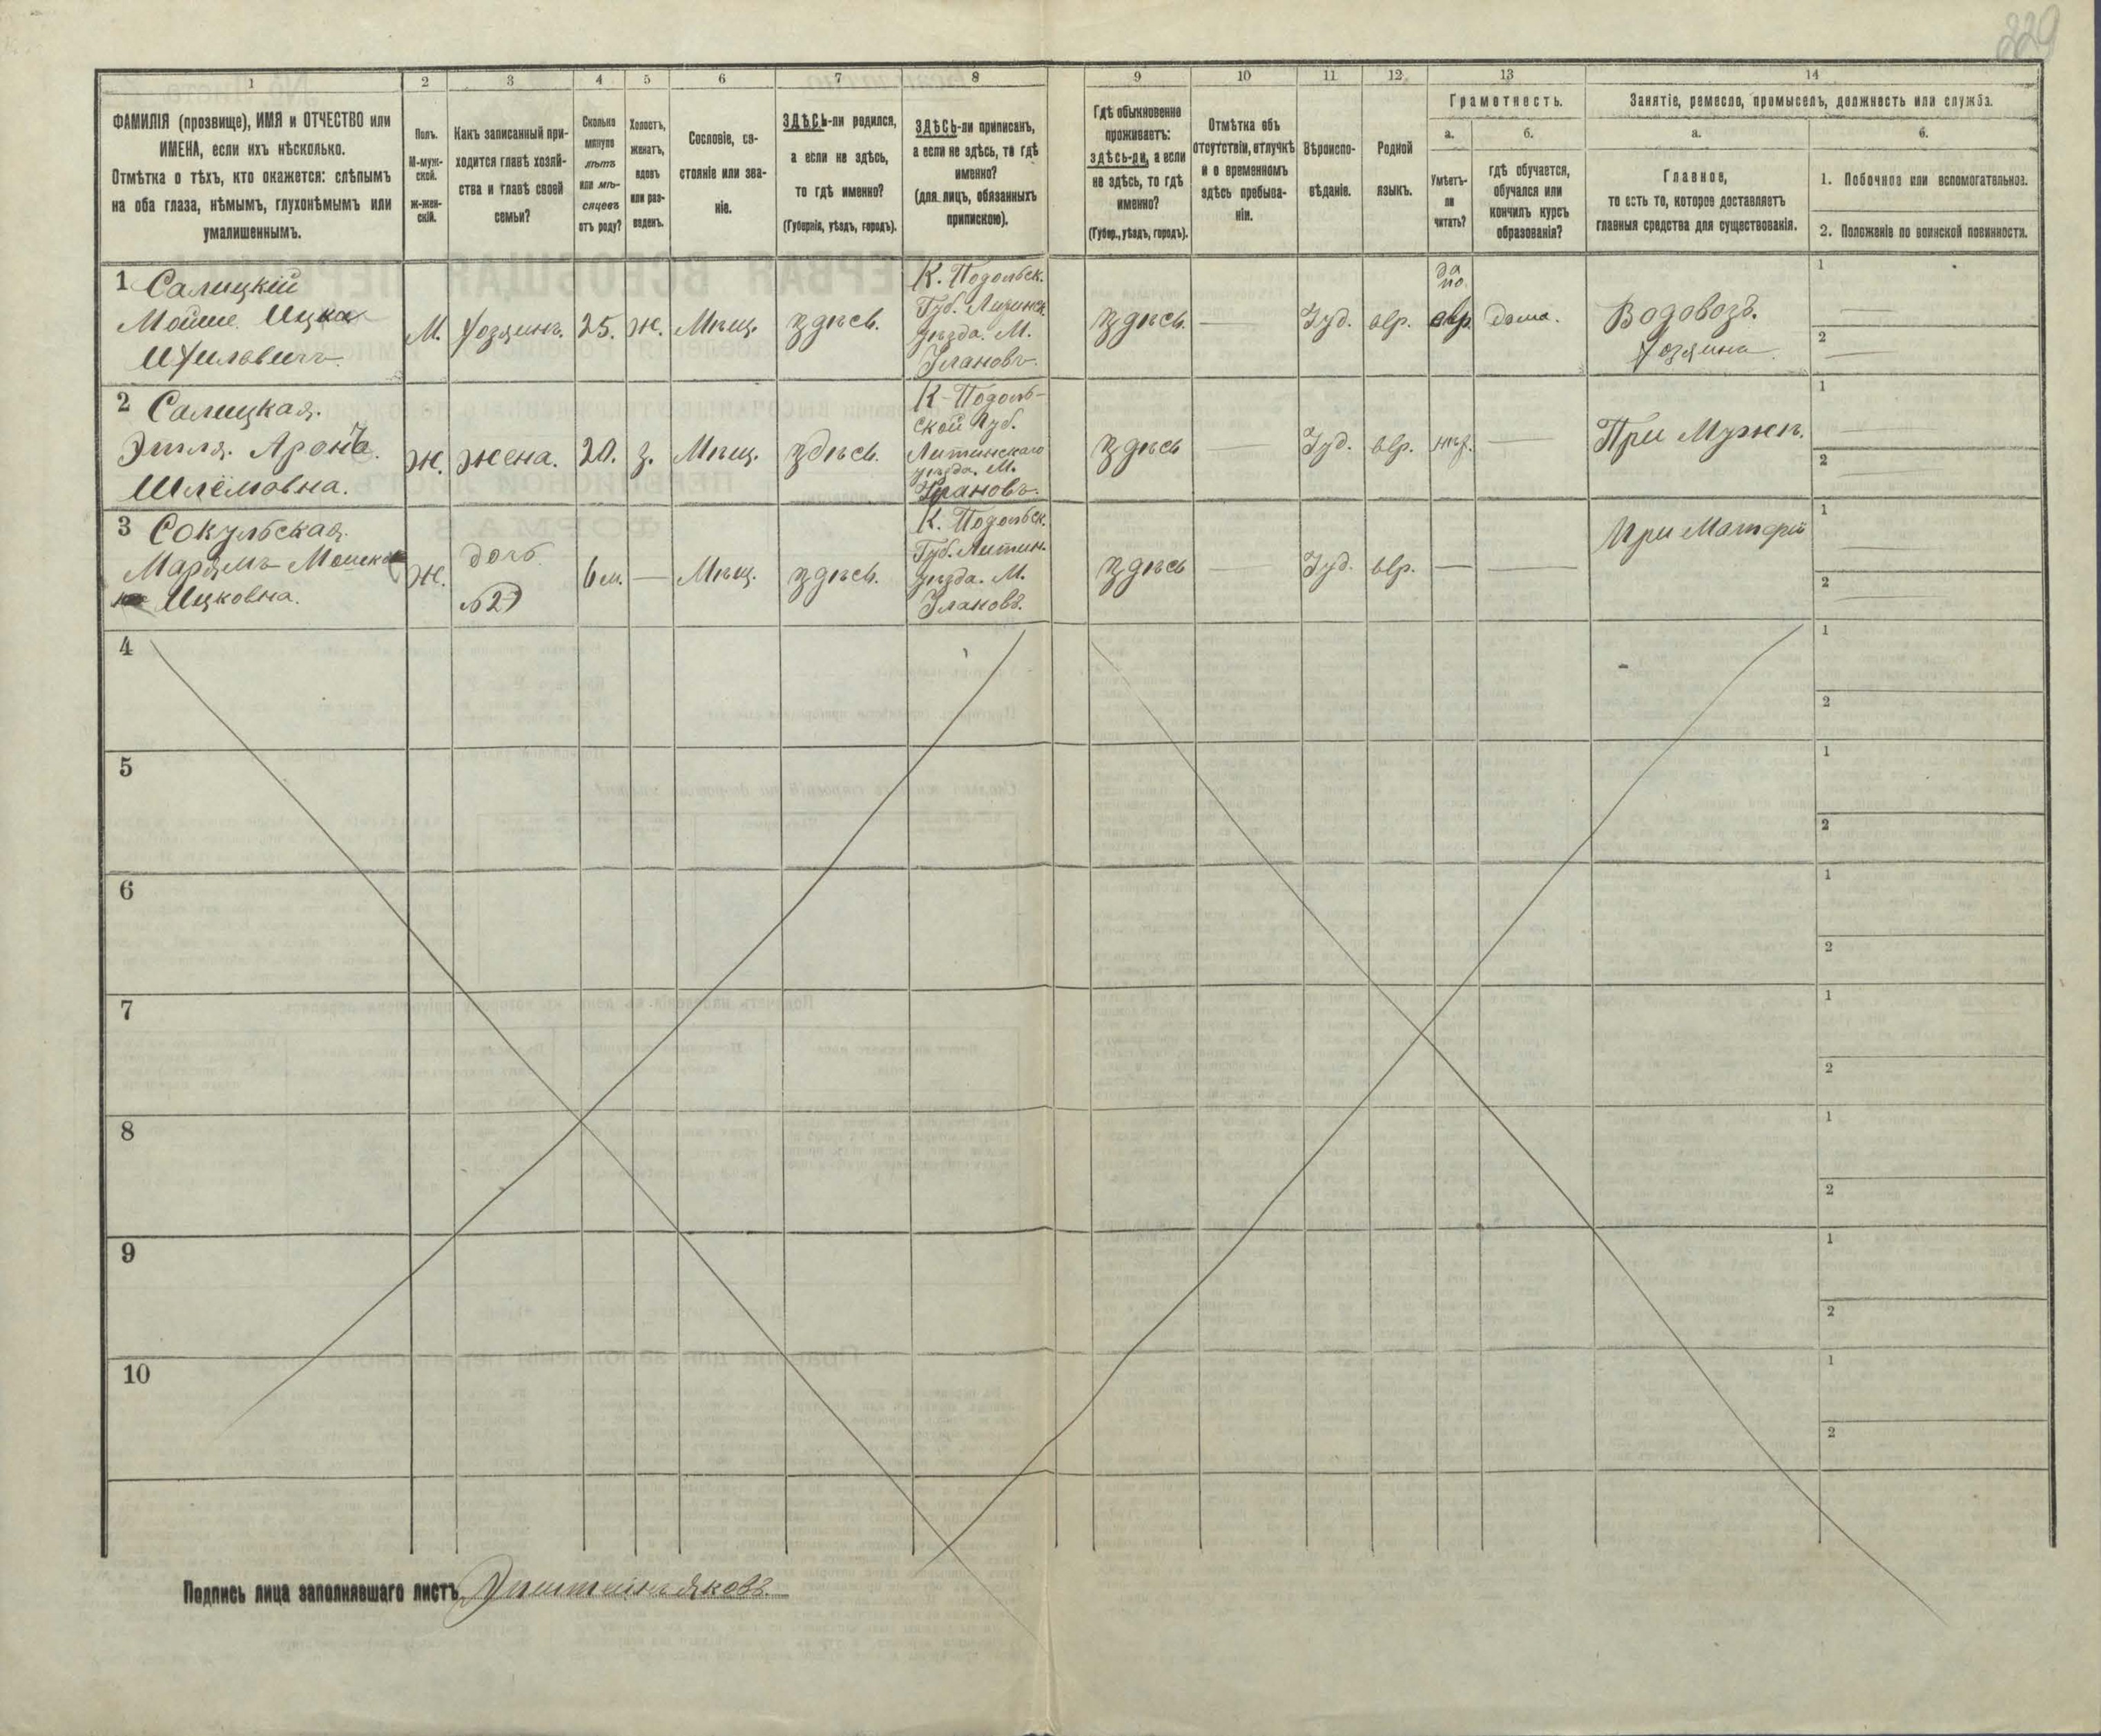 229
1
2
3
4
5
6
7
8
9
10
11
12
13
14
ФАМИЛІЯ (прозвище), ИМЯ и ОТЧЕСТВО или
ИМЕНА, если ихъ нѣсколько.
Отмѣтка о тѣхъ, кто окажется: слѣпымъ
на оба глаза, нѣмымъ, глухонѣмымъ или
умалишеннымъ.
Полъ.
М-муж-
ской.
ж-жен-
скій.
Какъ записанный при-
ходится главѣ хозяй-
ства и главѣ своей
семьи?
Сколько
минуло
лѣтъ
или мѣ-
сяцевъ
отъ роду?
Холостъ,
женатъ,
вдовъ
или раз-
веденъ.
Сословіе, со-
стояніе или зва-
ніе.
ЗДѢСЬ-ли родился,
а если не здѣсь,
то гдѣ именно?
(Губернія, уѣздъ, городъ).
ЗДѢСЬ-ли приписанъ,
а если не здѣсь, то гдѣ
именно?
(для лицъ, обязанныхъ
припискою).
Гдѣ обыкновенно
проживаетъ:
здѣсь-ли, а если
не здѣсь, то гдѣ
именно?
(Губер., уѣздъ, городъ).
Отмѣтка объ
отсутствіи, отлучкѣ
и о временномъ
здѣсь пребыва-
ніи.
Вѣроиспо-
вѣданіе.
Родной
языкъ.
Грамотность.
а.
Умѣетъ-
ли
читать?
б.
гдѣ обучается,
обучался или
кончилъ курсъ
образованія?
Занятіе, ремесло, промыселъ, должность или служба.
а.
Главное,
то есть то, которое доставляетъ
главныя средства для существованія.
б.
1. Побочное или вспомогательное.
2. Положеніе по воинской повинности.
1 Салицкій
Мошие Ицка
М.
Хозяинъ.
25.
ж.
Мѣщ.
здѣсь.
К. Подольск.
Губ.
уѣзда. М.
Улановъ.
здѣсь
—
Іуд.
евр.
да
по
евр.
дома.
Водовозъ.
Хозяина
1
—
2
—
2 Салицкая.
Этля. Арон
Шлемовна.
ж.
жена.
20.
з.
Мѣщ.
здѣсь.
К-Подоль-
ской Губ.
Литинскаго
уѣзда. М.
Улановъ.
здѣсь
—
Іуд.
евр.
нѣт.
—
При Мужѣ.
1
—
2
—
3 Сокульская
Марямъ
Ицковна.
ж.
дочь
№2
6 м.
—
Мѣщ.
здѣсь.
К. Подольск.
Губ. Литин.
уѣзда. М.
Улановъ.
здѣсь
—
Іуд.
евр.
—
—
При Матери
1
—
2
—
4
1
2
5
1
2
6
1
2
7
1
2
8
1
2
9
1
2
10
1
2
Подпись лица заполнявшаго листъ